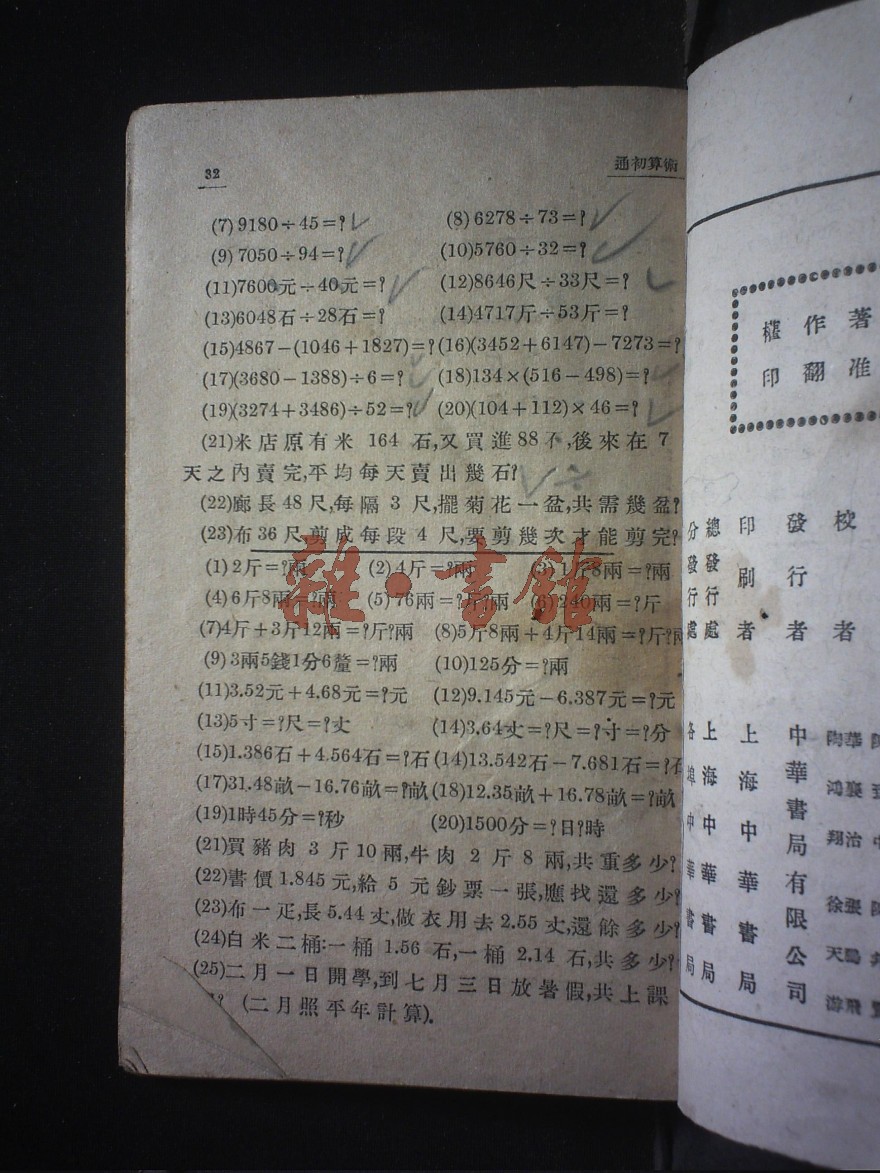 32
通初算術
(7) 9180÷45=? (8) 6278÷73=?
(9) 7050÷94=? (10)5760÷32=?
(11)7600元÷40元=? (12)8646尺÷33尺=?
(13)6048石÷28石=? (14)4717斤÷53斤=?
(15)4867-(1046+1827)=? (16)(3452+6147)-7273=?
(17)(3680-1388)÷6=? (18)134×(516-498)=?
(19)(3274+3486)÷52=? (20)(104+112)×46=?
(21)米店原有米 164 石,又買進88石,後來在 7
天之內賣完,平均每天賣出幾石?
(22)廊長 48 尺,每隔 3 尺,擺菊花一盆,共需幾盆?
(23)布 36 尺,剪成每段 4 尺,要剪幾次才能剪完?
(1) 2斤=?兩 (2) 4斤=?兩 (3) 1斤8兩=?兩
(4) 6斤8兩=?兩 (5) 76兩=?斤?兩 (6) 240兩=?斤
(7)4斤+3斤12兩=?斤?兩 (8)5斤8兩+4斤14兩=?斤?兩
(9) 3兩5錢1分6釐=?兩 (10)125分=?兩
(11)3.52元+4.68元=?元 (12)9.145元-6.387元=?元
(13)5寸=?尺=?丈 (14)3.64丈=?尺=?寸=?分
(15)1.386石+4.564石=?石 (14)13.542石-7.681石=?石
(17)31.48畝-16.76畝=?畝 (18)12.35畝+16.78畝=?畝
(19)1時45分=?秒 (20)1500分=?日?時
(21)買豬肉 3 斤 10 兩,牛肉 2 斤 8 兩,共重多少?
(22)書價 1.845 元,給 5 元鈔票一張,應找還多少?
(23)布一疋,長 5.44 丈,做衣用去 2.55 丈,還餘多少?
(24)白米二桶:一桶 1.56 石,一桶 2.14 石,共多少?
(25)二月一日開學,到七月三日放暑假,共上課
? (二月照平年計算).
雜·書館
著作權
准翻印
校者
發行者
印刷者
總發行處
分發行處
中華書局有限公司
上海中華書局
上海中華書局
各埠中華書局
陶鴻翔 徐天游
華襄治 張鵬飛